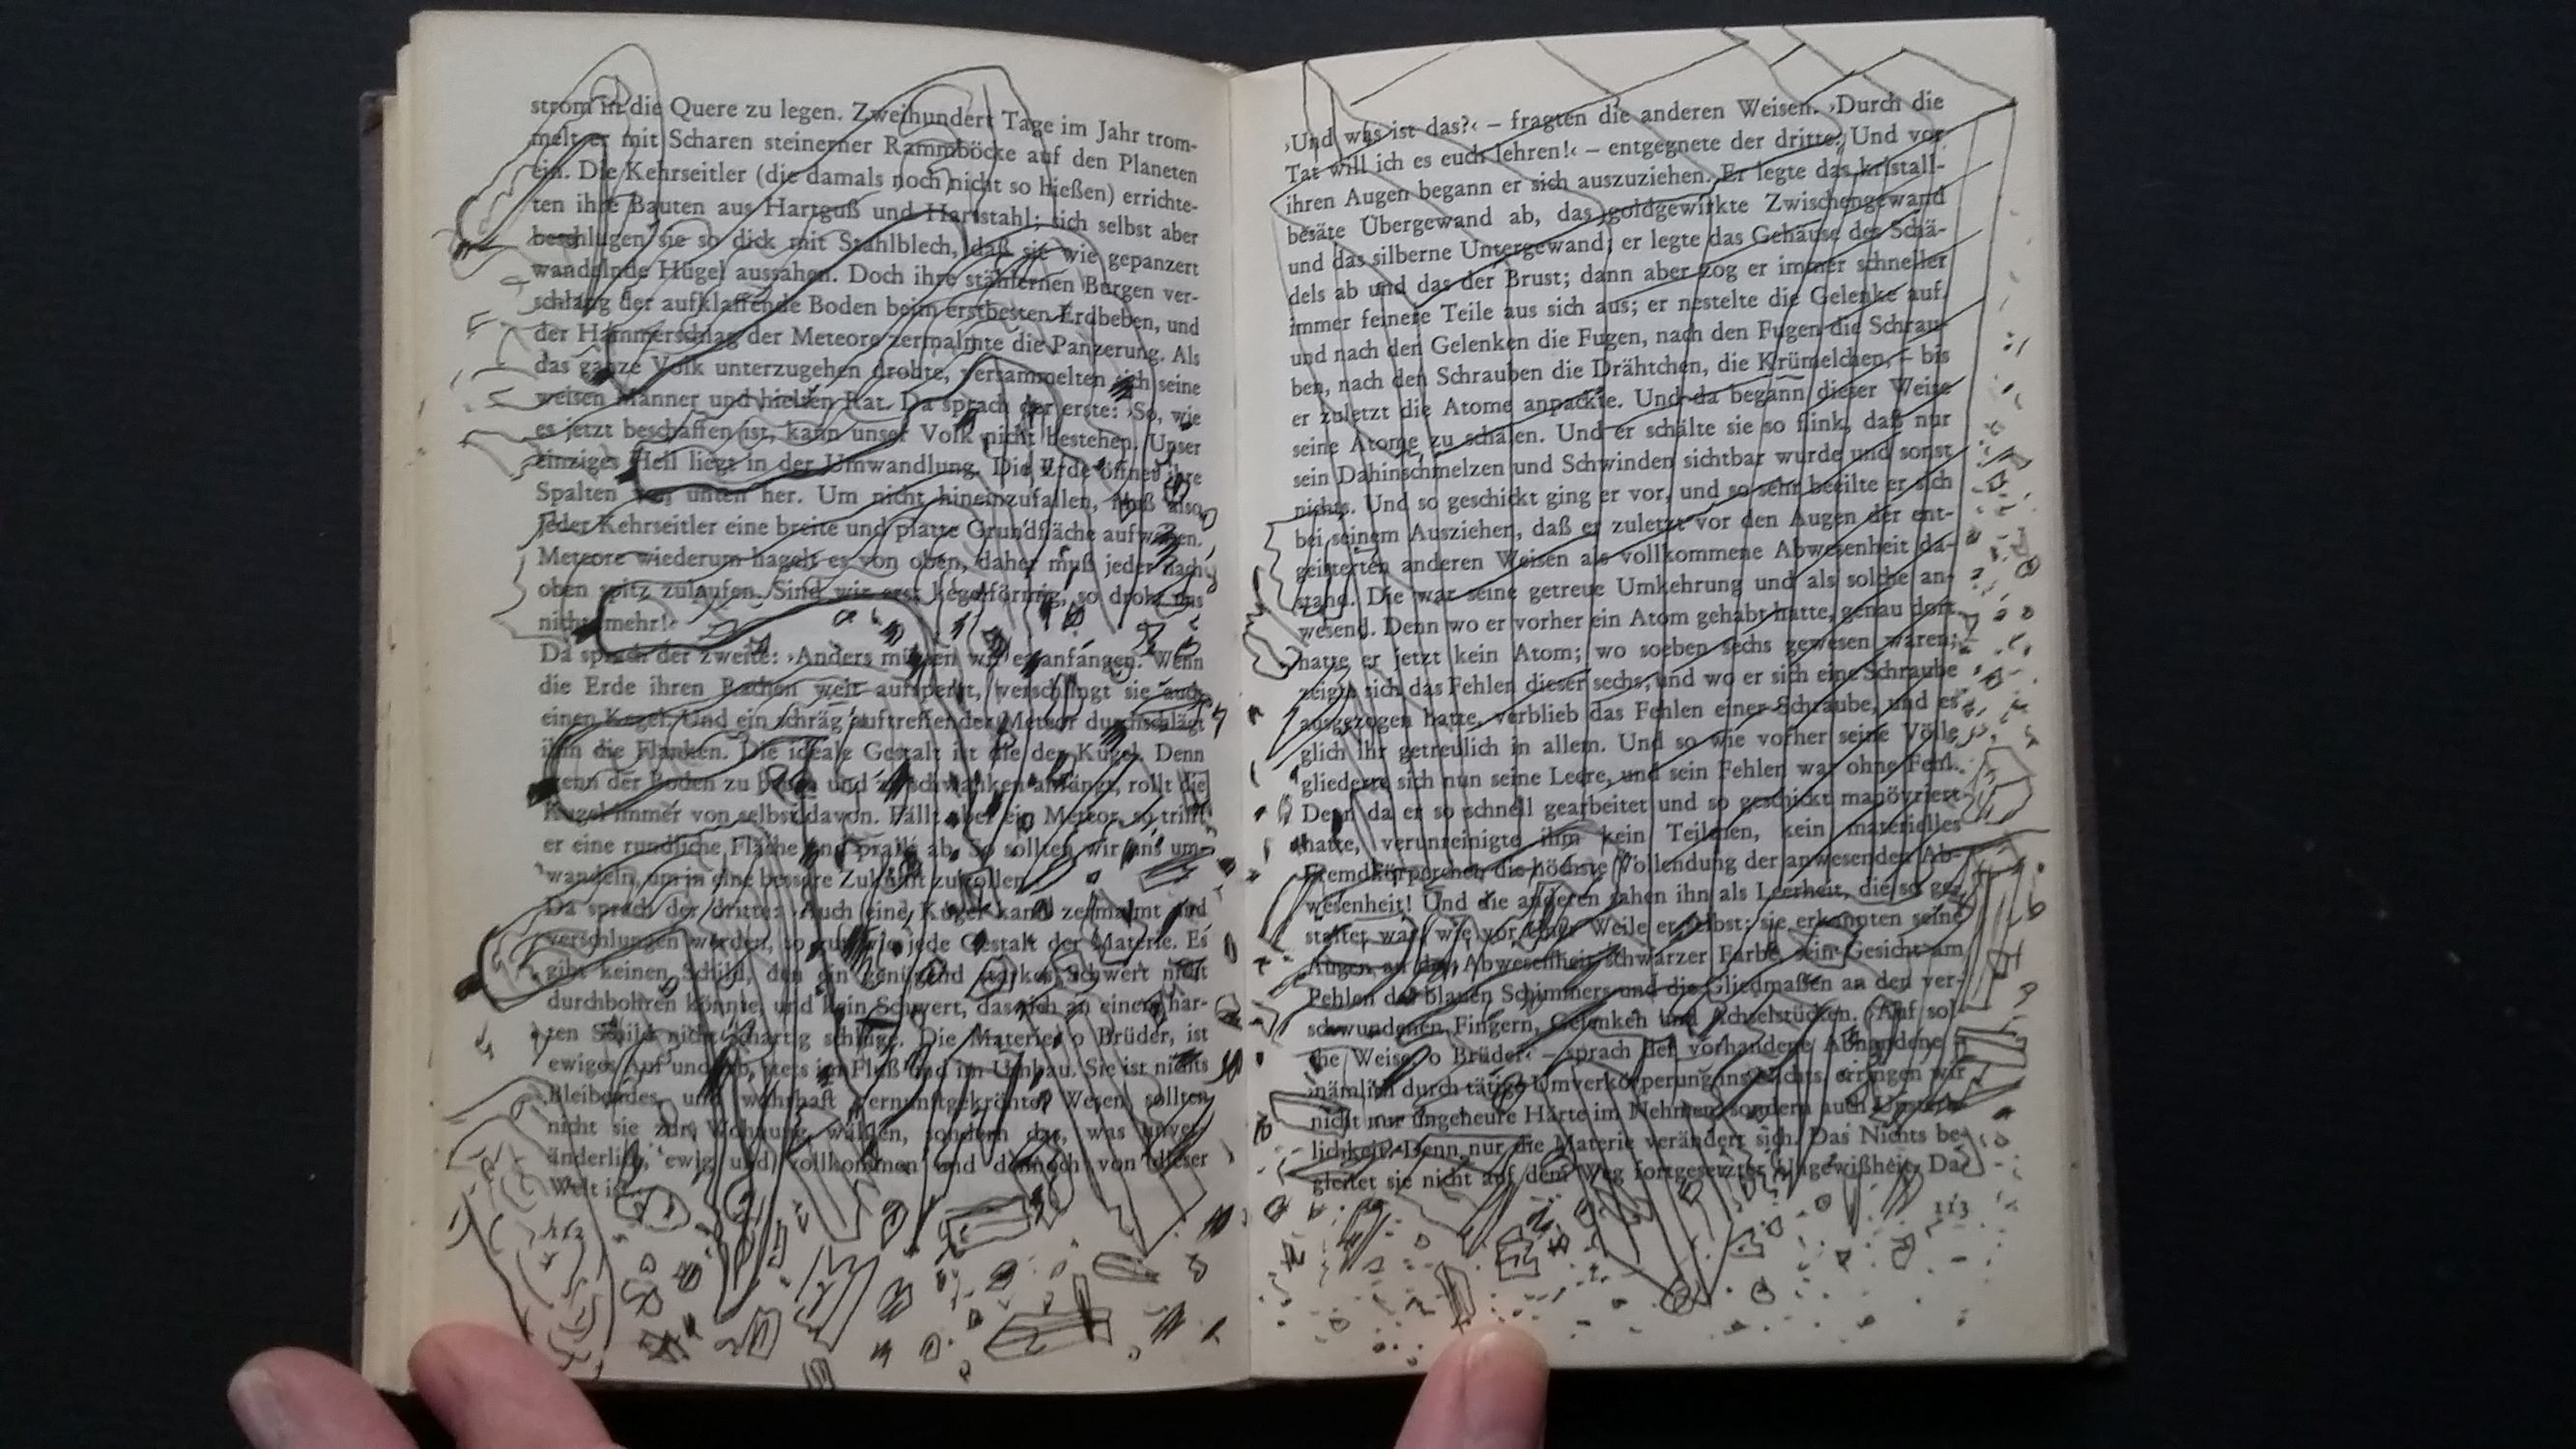 strom in die Quere zu legen. Zweihundert Tage im Jahr trom-
melt er mit Scharen steinerner Rammböcke auf den Planeten
ein. Die Kehrseitler (die damals noch nicht so hießen) errichte-
ten ihre Bauten aus Hartguß und Hartstahl; sich selbst aber
beschlugen sie so dick mit Stahlblech, daß sie wie gepanzert
wandelnde Hügel aussahen. Doch ihre stählernen Burgen ver-
schlang der aufklaffende Boden beim erstbesten Erdbeben, und
der Hammerschlag der Meteore zermalmte die Panzerung. Als
das ganze Volk unterzugehen drohte, versammelten sich seine
weisen Männer und hielten Rat. Da sprach der erste: ›So, wie
es jetzt beschaffen ist, kann unser Volk nicht bestehen. Unser
einziges Heil liegt in der Umwandlung. Die Erde öffnet ihre
Spalten von unten her. Um nicht hineinzufallen, muß also
jeder Kehrseitler eine breite und platte Grundfläche aufweisen.
Meteore wiederum hagelt es von oben, daher muß jeder nach
oben spitz zulaufen. Sind wir erst kegelförmig, so droht uns
nichts mehr!‹
Da sprach der zweite: ›Anders müssen wir es anfangen. Wenn
die Erde ihren Rachen weit aufsperrt, verschlingt sie auch
einen Kegel. Und ein schräg auftreffender Meteor durchschlägt
ihm die Flanken. Die ideale Gestalt ist die der Kugel. Denn
wenn der Boden zu beben und zu schwanken anfängt, rollt die
Kugel immer von selbst davon. Fällt aber ein Meteor, so trifft
er eine rundliche Fläche und prallt ab. So sollten wir uns um-
wandeln, um in eine bessere Zukunft zu rollen.
Da sprach der dritte: ›Auch eine Kugel kann zermalmt und
verschlungen werden, so gut wie jede Gestalt der Materie. Es
gibt keinen Schild, den ein genügend starkes Schwert nicht
durchbohren könnte, und kein Schwert, das sich an einem har-
ten Schild nicht schartig schlüge. Die Materie, o Brüder, ist
ewiges Auf und Ab, stets im Fluß und im Umbau. Sie ist nichts
Bleibendes, und wahrhaft vernunftgekrönte Wesen sollten
nicht sie zur Wohnung wählen, sondern das, was unver-
änderlich, ewig und vollkommen und dennoch von dieser
Welt ist.
112
›Und was ist das?‹ – fragten die anderen Weisen. ›Durch die
Tat will ich es euch lehren!‹ – entgegnete der dritte. Und vor
ihren Augen begann er sich auszuziehen. Er legte das kristall-
besäte Übergewand ab, das goldgewirkte Zwischengewand
und das silberne Untergewand; er legte das Gehäuse des Schä-
dels ab und das der Brust; dann aber zog er immer schneller
immer feinere Teile aus sich aus; er nestelte die Gelenke auf,
und nach den Gelenken die Fugen, nach den Fugen die Schrau-
ben, nach den Schrauben die Drähtchen, die Krümelchen, – bis
er zuletzt die Atome anpackte. Und da begann dieser Weise
seine Atome zu schälen. Und er schälte sie so flink, daß nur
sein Dahinschmelzen und Schwinden sichtbar wurde und sonst
nichts. Und so geschickt ging er vor, und so sehr beeilte er sich
bei seinem Ausziehen, daß er zuletzt vor den Augen der ent-
geisterten anderen Weisen als vollkommene Abwesenheit da-
stand. Die war seine getreue Umkehrung und als solche an-
wesend. Denn wo er vorher ein Atom gehabt hatte, genau dort
hatte er jetzt kein Atom; wo soeben sechs gewesen waren,
zeigte sich das Fehlen dieser sechs, und wo er sich eine Schraube
ausgezogen hatte, verblieb das Fehlen einer Schraube, und es
glich ihr getreulich in allem. Und so wie vorher seine Völle
gliederte sich nun seine Leere, und sein Fehlen war ohne Fehl.
Denn da er so schnell gearbeitet und so geschickt manövriert
hatte, verunreinigte ihm kein Teilchen, kein materielles
Fremdkörperchen die höchste Vollendung der anwesenden Ab-
wesenheit! Und die anderen sahen ihn als Leerheit, die so ge-
staltet war, wie vor einer Weile er selbst; sie erkannten seine
Augen an der Abwesenheit schwarzer Farbe, sein Gesicht am
Fehlen des blauen Schimmers und die Gliedmaßen an den ver-
schwundenen Fingern, Gelenken und Achselstücken. ›Auf sol-
che Weise, o Brüder‹ – sprach der vorhandene Abhandene –
›nämlich durch tätige Umverkörperung ins Nichts, erringen wir
nicht nur ungeheure Härte im Nehmen, sondern auch Unsterb-
lichkeit. Denn nur die Materie verändert sich. Das Nichts be-
gleitet sie nicht auf dem Weg fortgesetzter Ungewißheit. Da
113